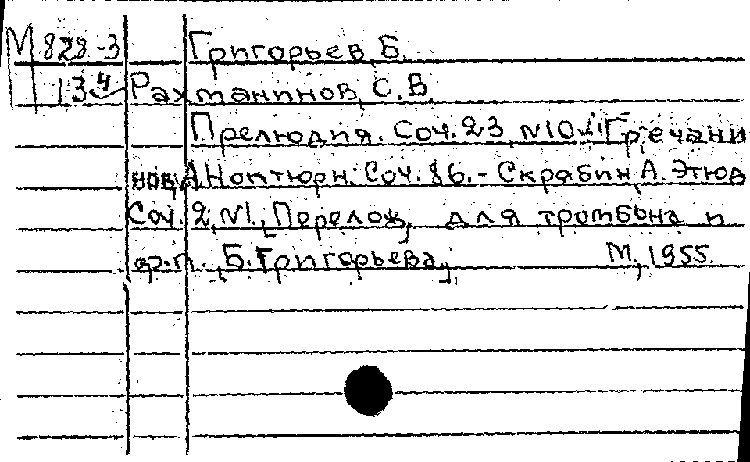 М 828-3 Григорьев, Б.
134 Рахманинов, С.В.
Прелюдия. Соч. 23, №10.-Гречани
нов, А. Ноктюрн. Соч. 86.- Скрябин, А. Этюд
Соч. 2, №1. [Перелож. для тромбона и
ф.п. Б. Григорьева.] М., 1955.